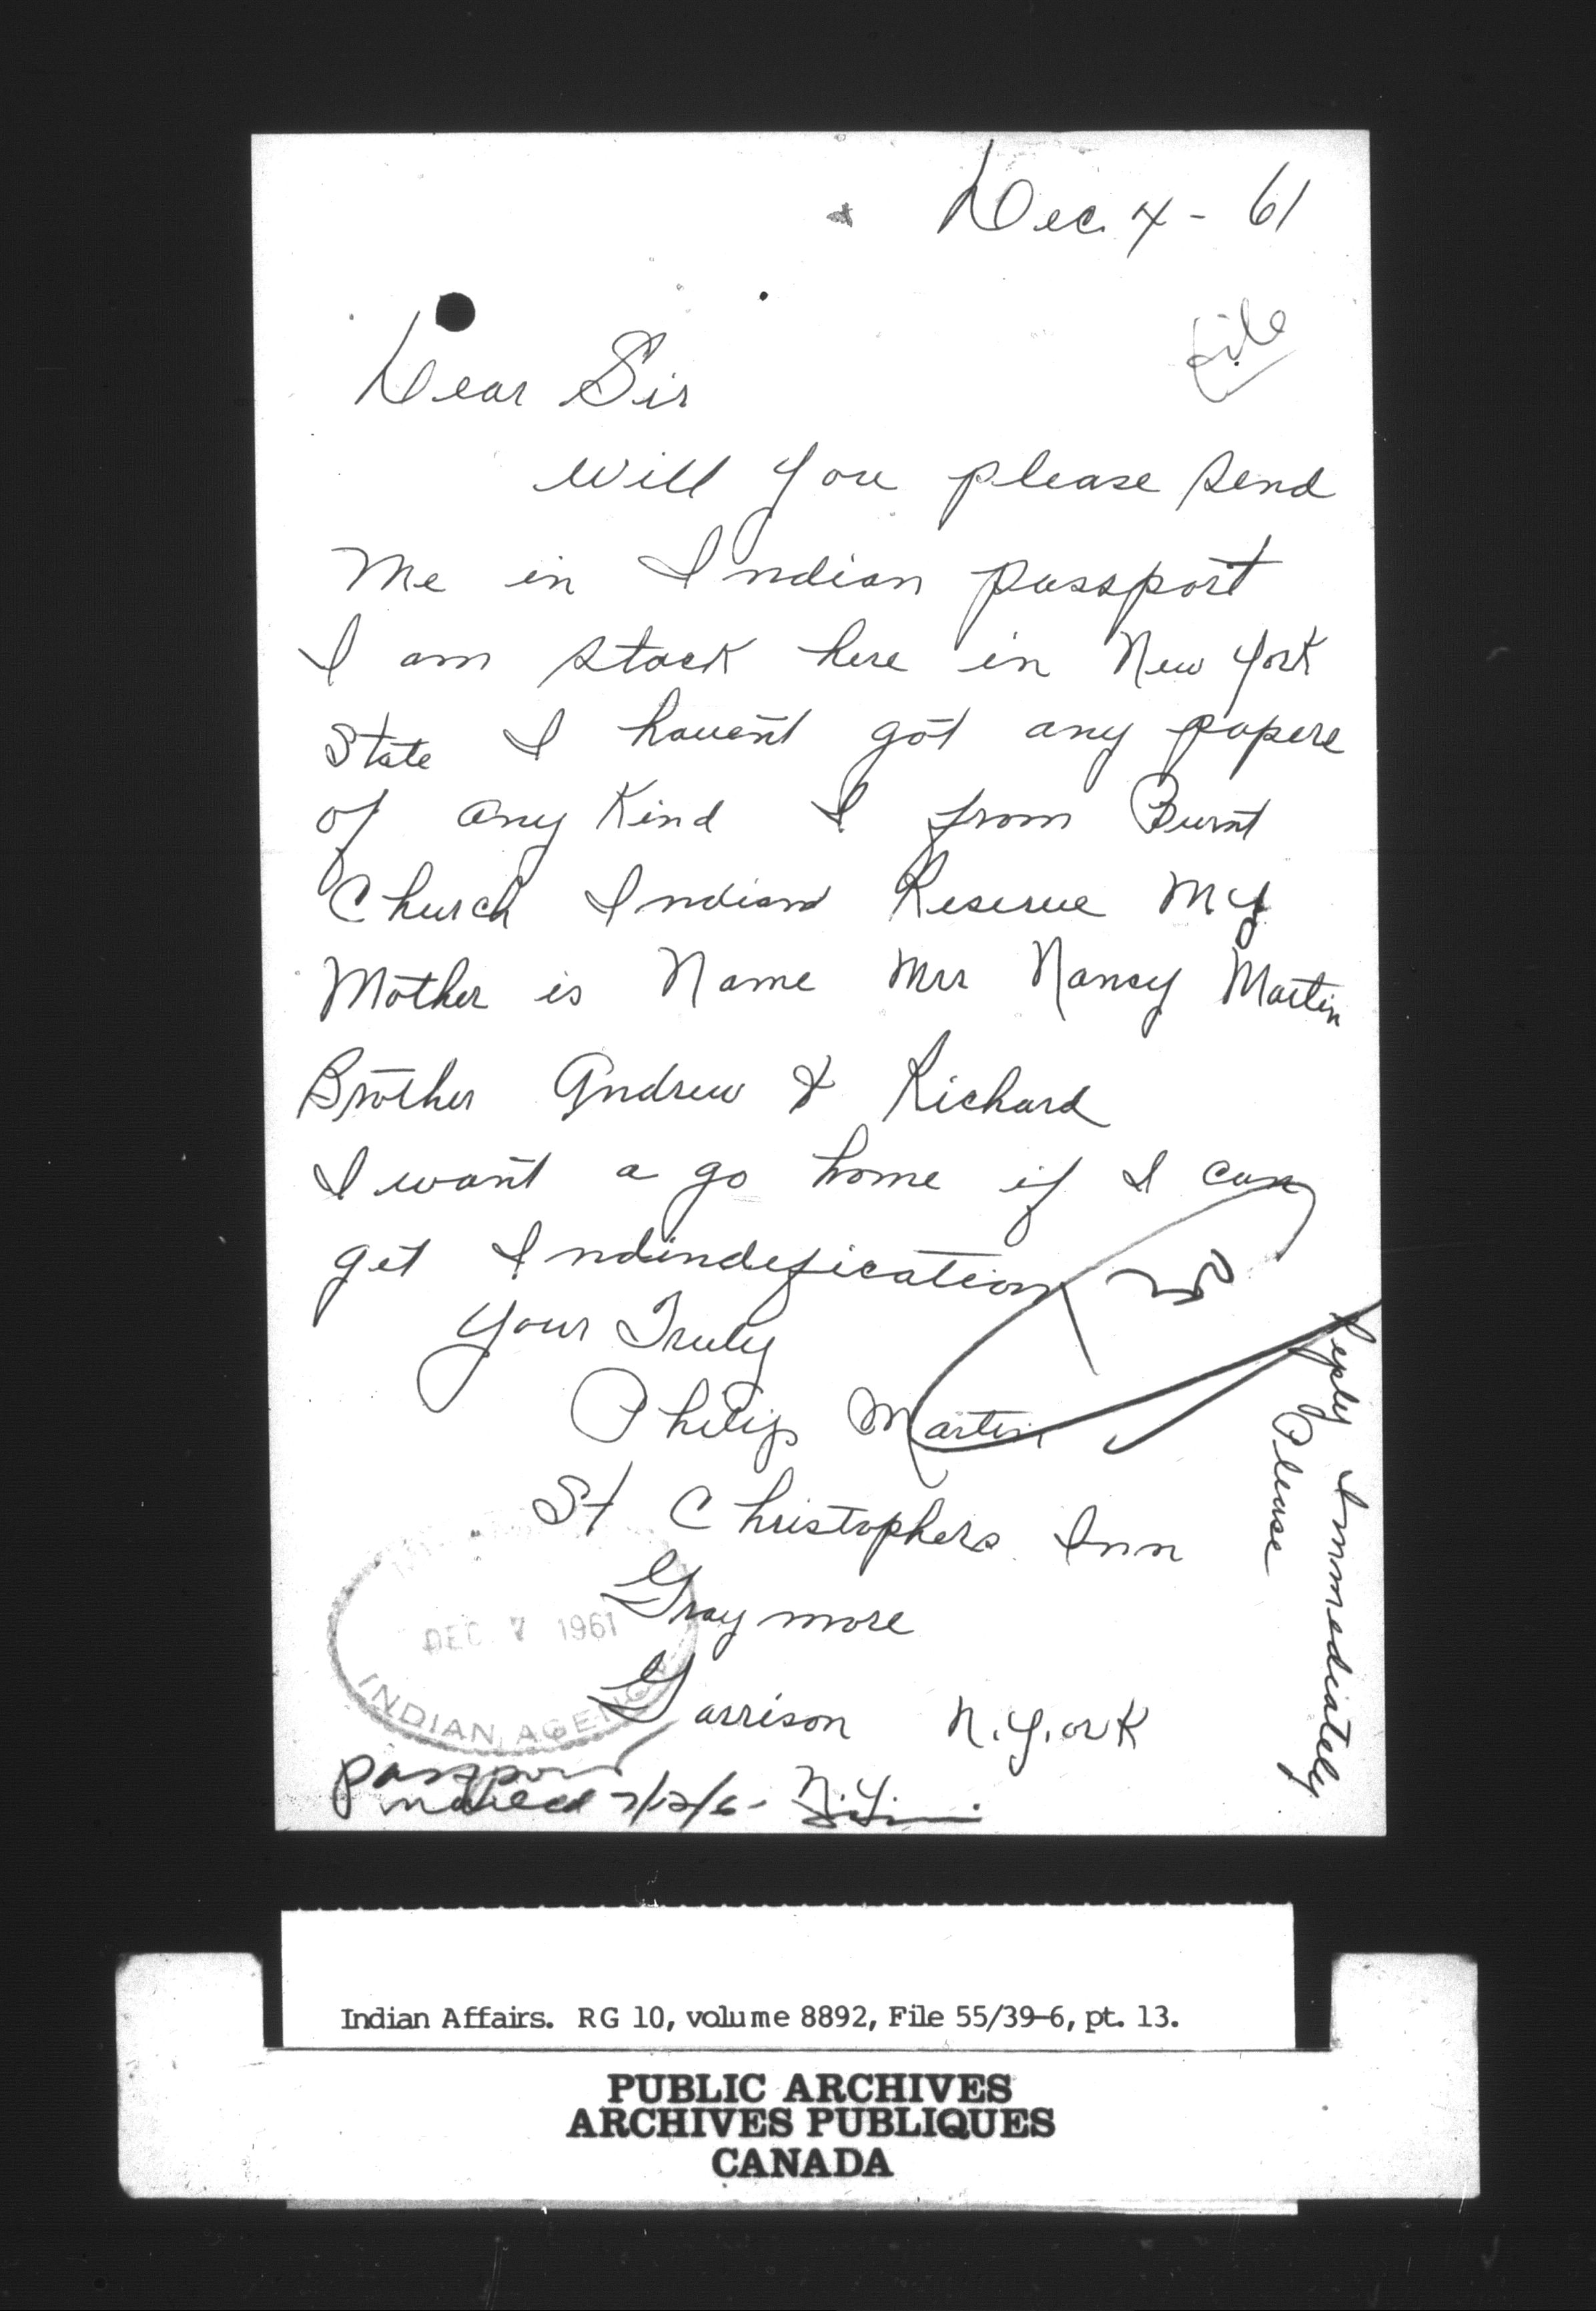 Dec. 4 - 61
file
Dear Sir
Will you please send
me in Indian passport
I am stock here in New York
State I haven't got any papers
of any Kind I from Burnt
Church Indian Reserve My
Mother is Name Mrs Nancy Martin
Brother Andrew & Richard
I want a go home if I can
get Indindefication
Your Truly
Philip Martin
St Christophers Inn
Graymore
Garrison N.Y.ork
Reply Immediately
Please
DEC 7 1961
INDIAN AGENCY
passport
mailed 7/12/6-
Indian Affairs. RG 10, volume 8892, File 55/39-6, pt. 13.
PUBLIC ARCHIVES
ARCHIVES PUBLIQUES
CANADA